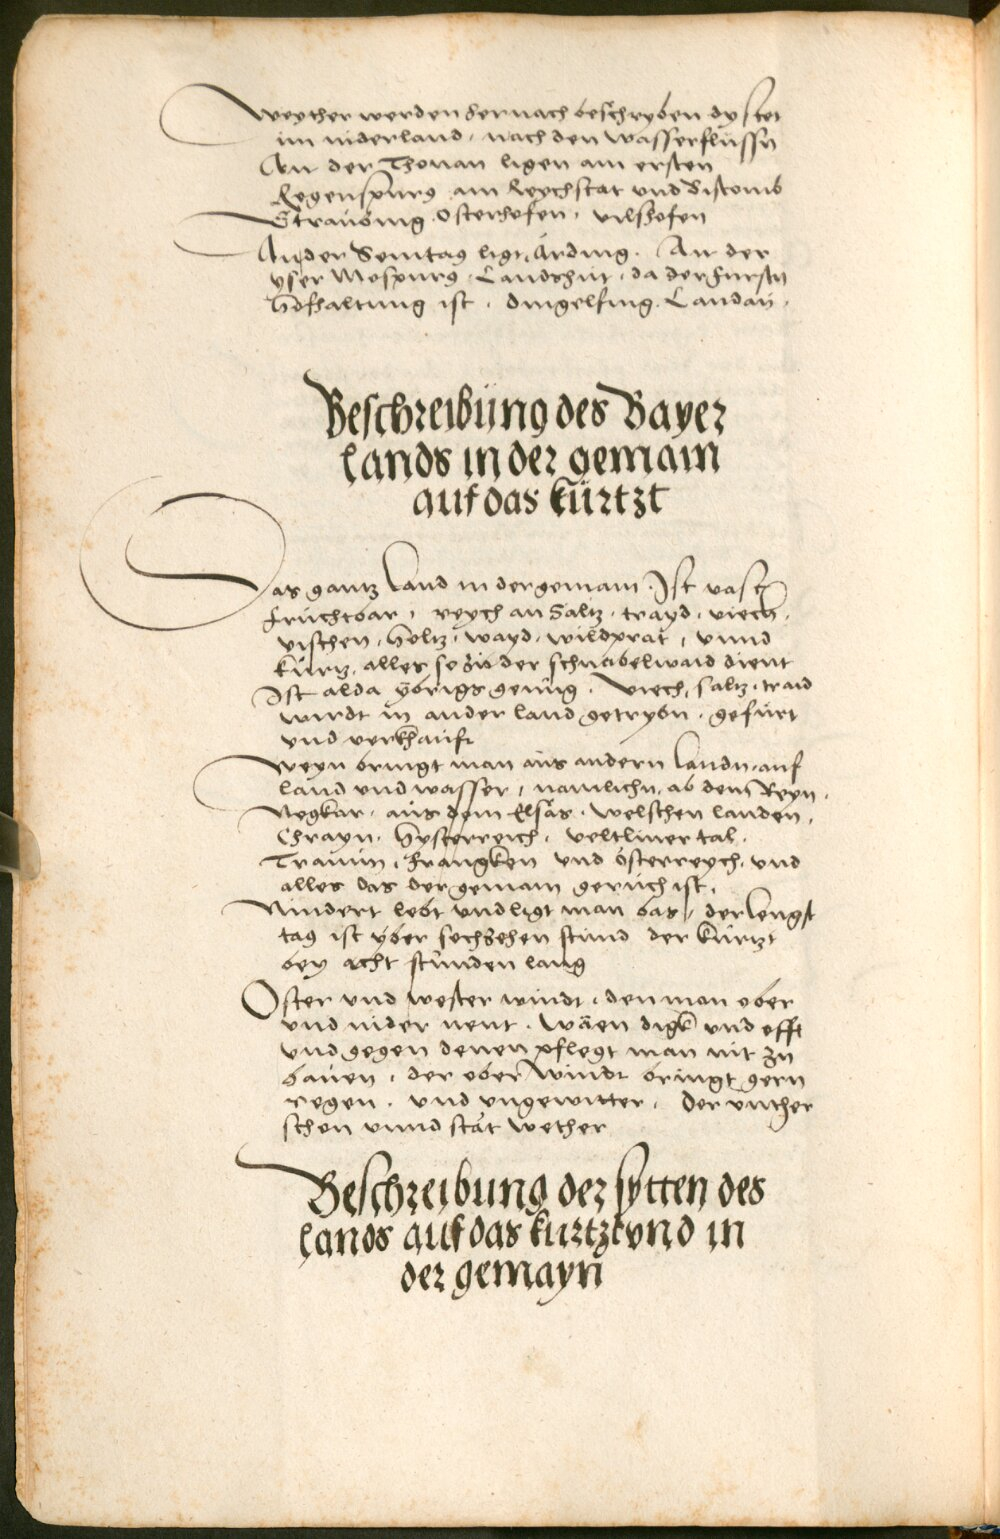 Weyther werden hernach beschryben dy stet
im niderland · nach den wasserflüssn
An der Thonau ligen am ersten
Regenspurg am Reychstat und Bistomb
Straubing Osterhofen · vilshofen
An der Semtag ligt Ärding · An der
yser Mospurg · Landshut · da der fursten
Hofhaltung ist · dingelfing · Landau ·
Beschreibung des Bayer
Lands in der gemain
auf das kürtzt
Das gantz Land in der gemain · Ist vast
fruchtbar · reych an Saltz · trayd · viech ·
vischen · holtz · wayd · wildprät · unnd
kurtz, alles so zu der schnabelwaid dient
Ist alda ybrigs genug · Viech, saltz · traid
wirdt in ander land getrybn · gefürt
und verkhauft
Weyn bringt man aus andern Landn · auf
land und wasser · namlichn · ab dem Reyn ·
Negkar · aus dem Elsas · welschen landen ·
Chrayn · Hysterreich · veltliner tal ·
Tramin · Frangken und österreych · und
alles das der gemain geruch ist ·
Nindert lebt und ligt man bas · der lengst
tag ist yber sechzehen stund der kürtzt
bey acht stunden lang
Oster und wester windt · den man ober
und nider nent · wäen digk und offt
und gegen denen pflegt man nit zu
bauen · der ober windt bringt gern
regen · und ungewitter · Der unther
schon unnd stät wether
Beschreibung der sytten des
lands auf das kurtzt und in
der gemayn